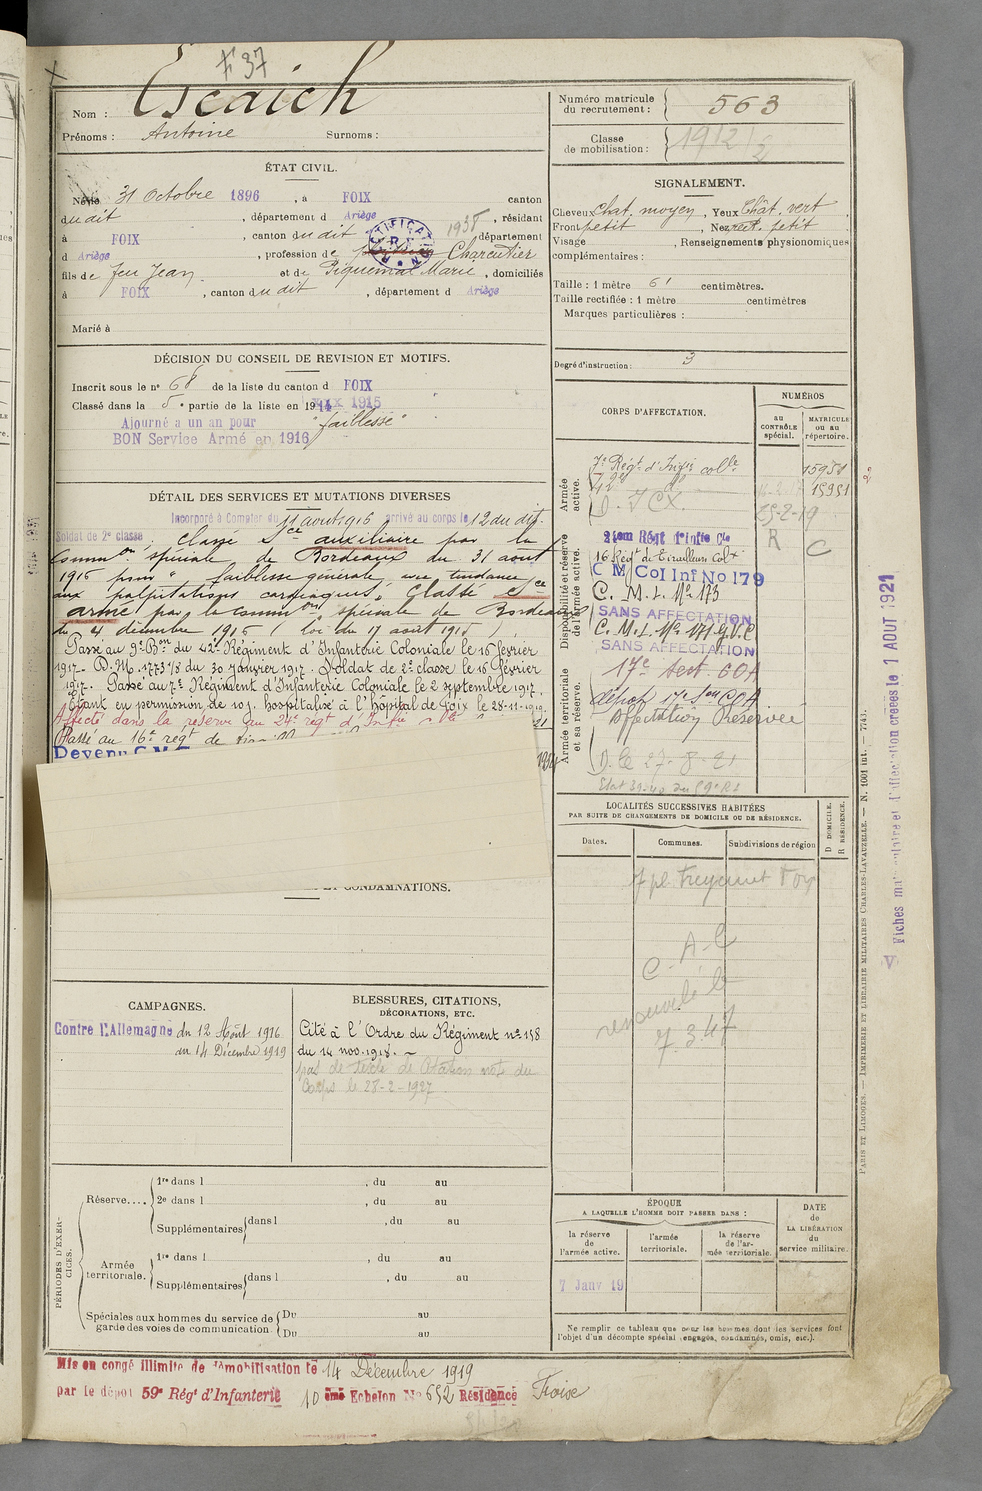 F 37
Nom : Escaich
Prénoms : Antoine Surnoms :
ÉTAT CIVIL.
Né le 31 Octobre 1896, à FOIX canton
dudit, département d Ariège, résidant
à FOIX, canton dudit 1935 département
d Ariège, profession de Charcutier
fils de feu Jean et de Piquemal Marie, domiciliés
à FOIX, canton dudit, département d Ariège
Marié à
DÉCISION DU CONSEIL DE REVISION ET MOTIFS.
Inscrit sous le n° 68 de la liste du canton d FOIX
Classé dans la 5e partie de la liste en 1915
Ajourné a un an pour "faiblesse"
BON Service Armé en 1916
DÉTAIL DES SERVICES ET MUTATIONS DIVERSES
Incorporé à Compter du 11 août 1916 arrivé au corps le 12 du dit.
Soldat de 2e classe, Classé Sce auxiliaire par la
Common spéciale de Bordeaux du 31 août
1916 pour "faiblesse générale, avec tendance
aux palpitations cardiaques". Classé Sce
armé par la Common spéciale de Bordeaux
du 4 décembre 1916 (loi du 17 août 1915)
Passé au 9e Bon du 42e Régiment d'Infanterie Coloniale le 16 février
1917. D.M. 1773 1/8 du 30 janvier 1917. Soldat de 2e classe le 16 février
1917. Passé au 7e Régiment d'Infanterie Coloniale le 2 septembre 1917.
Étant en permission de 10 j. hospitalisé à l'hôpital de Foix le 28-11-1919.
Affecté dans la réserve au 24e régt d'Infie
Passé au 16e régt de
Devenu C.M.I.
ET CONDAMNATIONS.
CAMPAGNES.
Contre l'Allemagne du 12 Août 1916
au 14 Décembre 1919
BLESSURES, CITATIONS,
DÉCORATIONS, ETC.
Cité à l'Ordre du Régiment n° 158
du 14 nov. 1918. -
pas de texte de Citation note du
Corps le 28-2-1927
PÉRIODES D'EXERCICES.
Réserve.... 1re dans l , du au
2e dans l , du au
Supplémentaires dans l , du au
Armée territoriale. 1re dans l , du au
Supplémentaires dans l , du au
Spéciales aux hommes du service de garde des voies de communication Du au
Du au
Mis en congé illimité de démobilisation le 14 Décembre 1919
par le dépôt 59e Régt d'Infanterie 10 ème Echelon No 652 Résidence Foix
Numéro matricule du recrutement : 563
Classe de mobilisation : 1912
SIGNALEMENT.
Cheveux Chat. moyen, Yeux Chât. vert
Front petit, Nez rect. petit
Visage , Renseignements physionomiques
complémentaires :
Taille : 1 mètre 61 centimètres.
Taille rectifiée : 1 mètre centimètres
Marques particulières :
Degré d'instruction : 3
CORPS D'AFFECTATION.
NUMÉROS
au CONTRÔLE spécial.
MATRICULE ou au répertoire.
Armée active.
7e Régt d'Infie colle 15951
42e do 15951
D. I CX. 25-2-19
Disponibilité et réserve de l'armée active.
24em Régt d'Infie Cle R
16 Régt de Tirailleurs Colx C
C M Col Inf No 179
C. M. I. No 173
SANS AFFECTATION
C. M. I. No 171 G.V.C
SANS AFFECTATION
Armée territoriale et sa réserve.
17e Sect. COA
dépôt 17e Son COA
Affectation Réservée
D. le 27-8-21
LOCALITÉS SUCCESSIVES HABITÉES
PAR SUITE DE CHANGEMENTS DE DOMICILE OU DE RÉSIDENCE.
Dates. Communes. Subdivisions de région
D DOMICILE.
R RÉSIDENCE.
7 pl. Freycinet Foix
C. A-C
renouvelé le
7. 3. 47
ÉPOQUE
A LAQUELLE L'HOMME DOIT PASSER DANS :
la réserve de l'armée active.
l'armée territoriale.
la réserve de l'armée territoriale.
DATE de LA LIBÉRATION du service militaire.
7 Janv 19
Ne remplir ce tableau que pour les hommes dont les services font
l'objet d'un décompte spécial (engagés, condamnés, omis, etc.).
PARIS ET LIMOGES. — IMPRIMERIE ET LIBRAIRIE MILITAIRES CHARLES-LAVAUZELLE. — N. 1001 int. — 7743.
Fiches matriculaire et d'affectation créées le 1 AOUT 1921